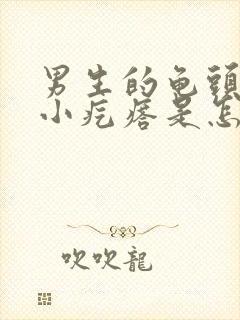 男生的龟頭
小疙瘩是怎
吹吹龍